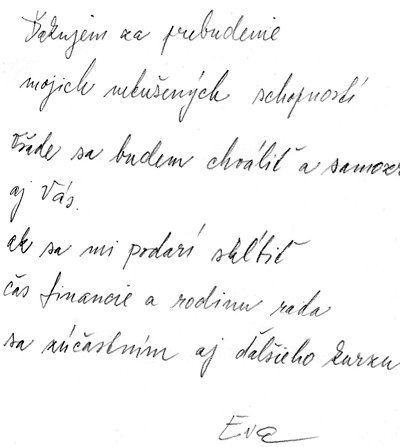 Ďakujem za prebudenie
mojich netušených schopností
Všade sa budem chváliť a samozr
aj Vás.
ak sa mi podarí skĺbiť
čas financie a rodinu rada
sa zúčastním aj ďalšieho kurzu
Eva